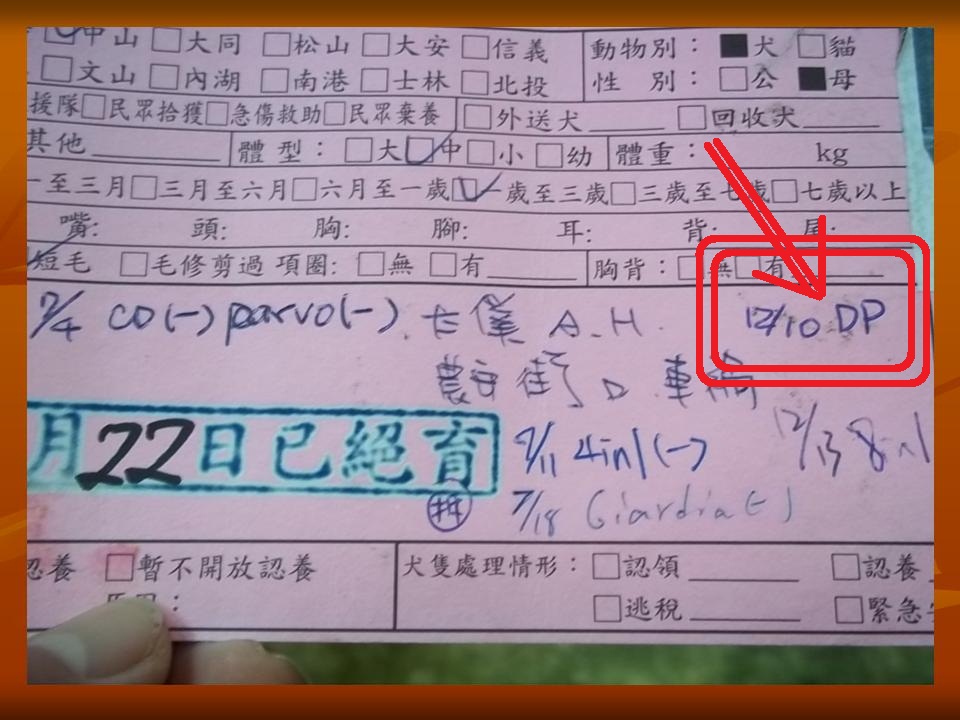 中山 □大同 □松山 □大安 □信義 動物別：■犬 □貓
□文山 □內湖 □南港 □士林 □北投 性 別：□公 ■母
援隊□民眾拾獲□急傷救助□民眾棄養 □外送犬____ □回收犬____
其他________ 體型：□大□中□小 □幼 體重： kg
一至三月□三月至六月□六月至一歲□一歲至三歲□三歲至七歲□七歲以上
嘴: 頭: 胸: 腳: 耳: 背: 尾:
短毛 □毛修剪過 項圈: □無 □有____ 胸背：□無□有
7/4 CO(-) parvo(-) 卡僅 A.H. 12/10 DP
農安街 口 車輛
月22日已絕育 7/11 4in1(-) 12/13 8in1
7/18 Giardia(-)
認養 □暫不開放認養 犬隻處理情形：□認領________ □認養
原因： □逃稅________ □緊急